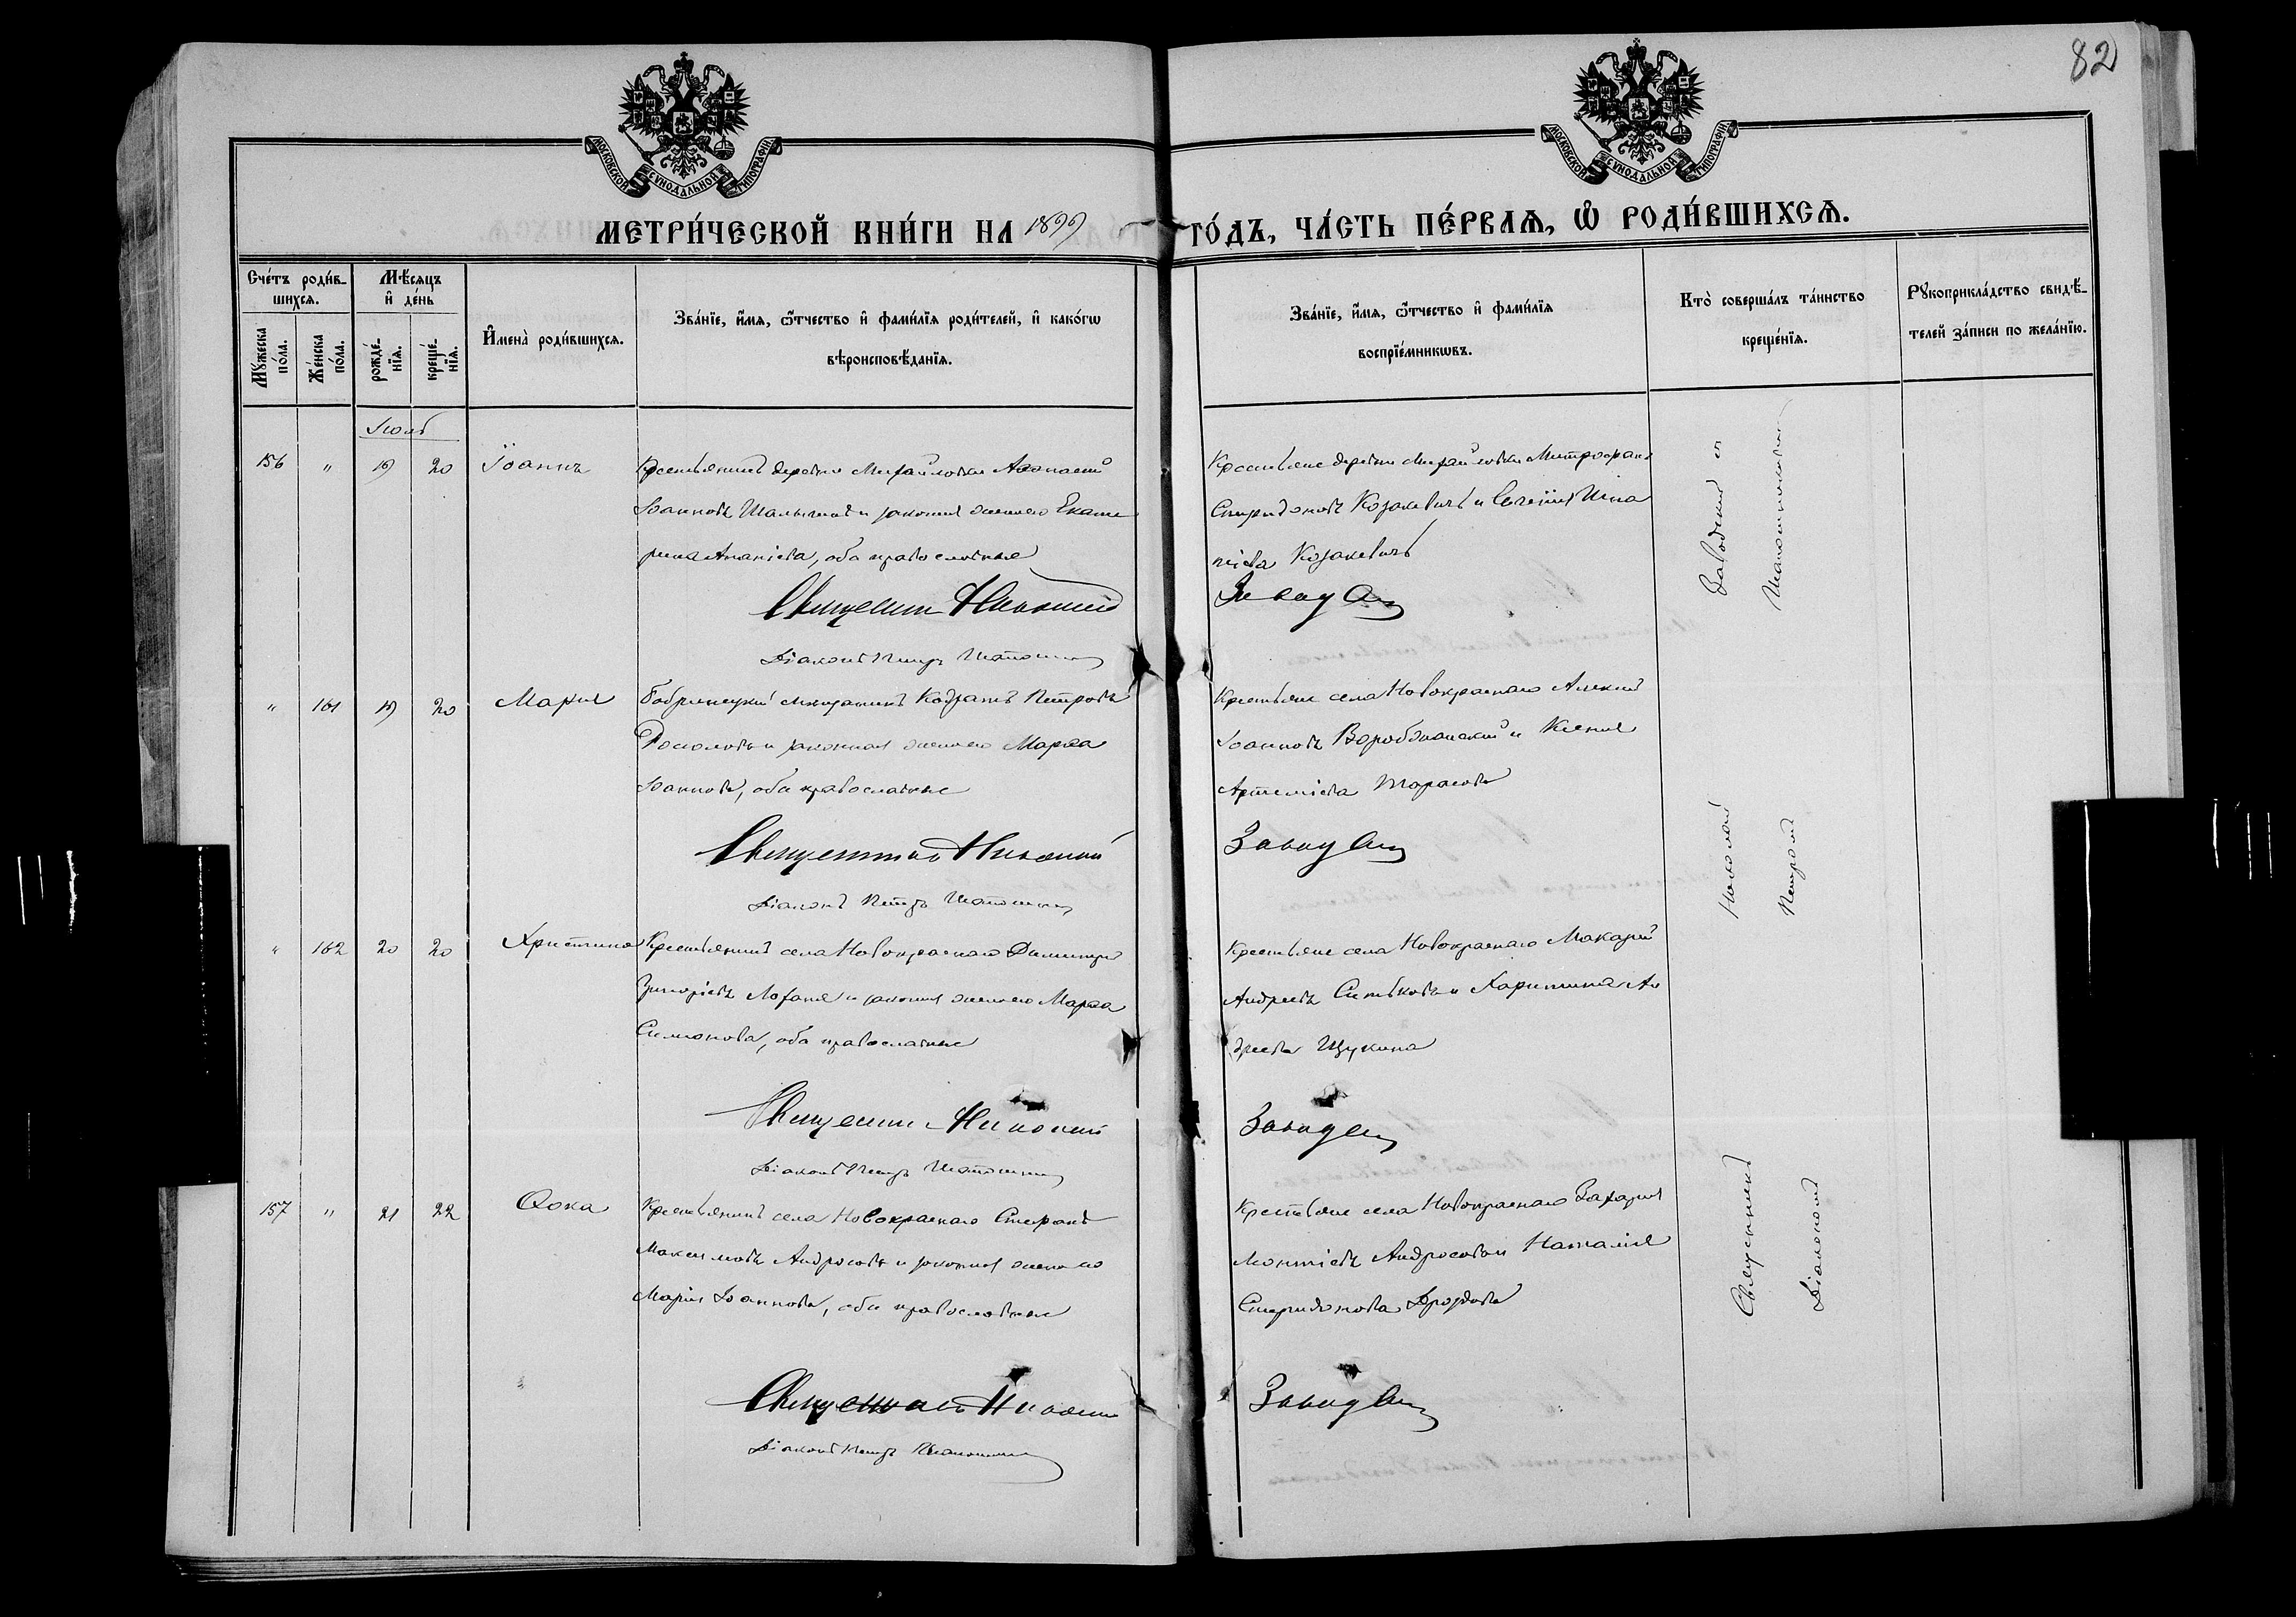 82
МОСКОВСКОЙ СУНОДАЛЬНОЙ ТИПОГРАФІИ
МОСКОВСКОЙ СУНОДАЛЬНОЙ ТИПОГРАФІИ
МЕТРИ́ЧЕСКОЙ КНИ́ГИ НА 1899 ГО́ДЪ, ЧА́СТЬ ПЕ́РВАѦ, Ѡ҆ РОДИ́ВШИХСѦ.
Сче́тъ роди́в-
шихсѧ.
Мꙋ́жеска по́ла.
Же́нска по́ла.
Мѣ́сѧцъ
и҆ де́нь
рожде́-нїѧ.
креще́-нїѧ.
И҆мена̀ роди́вшихсѧ.
Зва́нїе, и҆́мѧ, ѻ҆́тчество и҆ фами́лїѧ роди́телей, и҆ како́гѡ
вѣроисповѣ́данїѧ.
Зва́нїе, и҆́мѧ, ѻ҆́тчество и҆ фами́лїѧ
воспрїе́мникѡвъ.
Кто̀ соверша́лъ та́инство
креще́нїѧ.
Рꙋкоприкла́дство свидѣ́-
телей за́писи по жела́нїю.
Іюль
156 " 19 20 Іоаннъ
Крестьянинъ деревни Михайловки Аѳонасій
Іоанновъ и законная жена его Екате
рина Ананіева, оба православные
Священникъ Николай
Діаконъ Петръ
Крестьяне деревни Михайловки Митрофанъ
Спиридоновъ Козакевичъ и Евгенія Игна
тіева Козакевичъ
" 161 19 20 Марія
Бобринецкій мещанинъ Кодратъ Петровъ
и законная жена его Марѳа
Іоаннова, оба православные
Священникъ Николай
Діаконъ Петръ
Крестьяне села Новокраснаго Алексій
Іоанновъ и Ксенія
Артеміева Тарасова
" 162 20 20 Христина
Крестьянинъ села Новокраснаго Димитрій
Григоріевъ и законная жена его Марѳа
Симонова, оба православные
Священникъ Николай
Діаконъ Петръ
Крестьяне села Новокраснаго Макарій
Андреевъ и Харитина Ан
дреева Щукина
157 " 21 22 Ѳока
Крестьянинъ села Новокраснаго Стефанъ
Максимовъ Андросовъ и законная жена его
Марія Іоаннова, оба православные
Священникъ Николай
Діаконъ Петръ
Крестьяне села Новокраснаго Захарія
Андросовъ и Наталія
Спиридонова Дроздова
Священникъ Николай Заводскій и
Діакономъ Петромъ